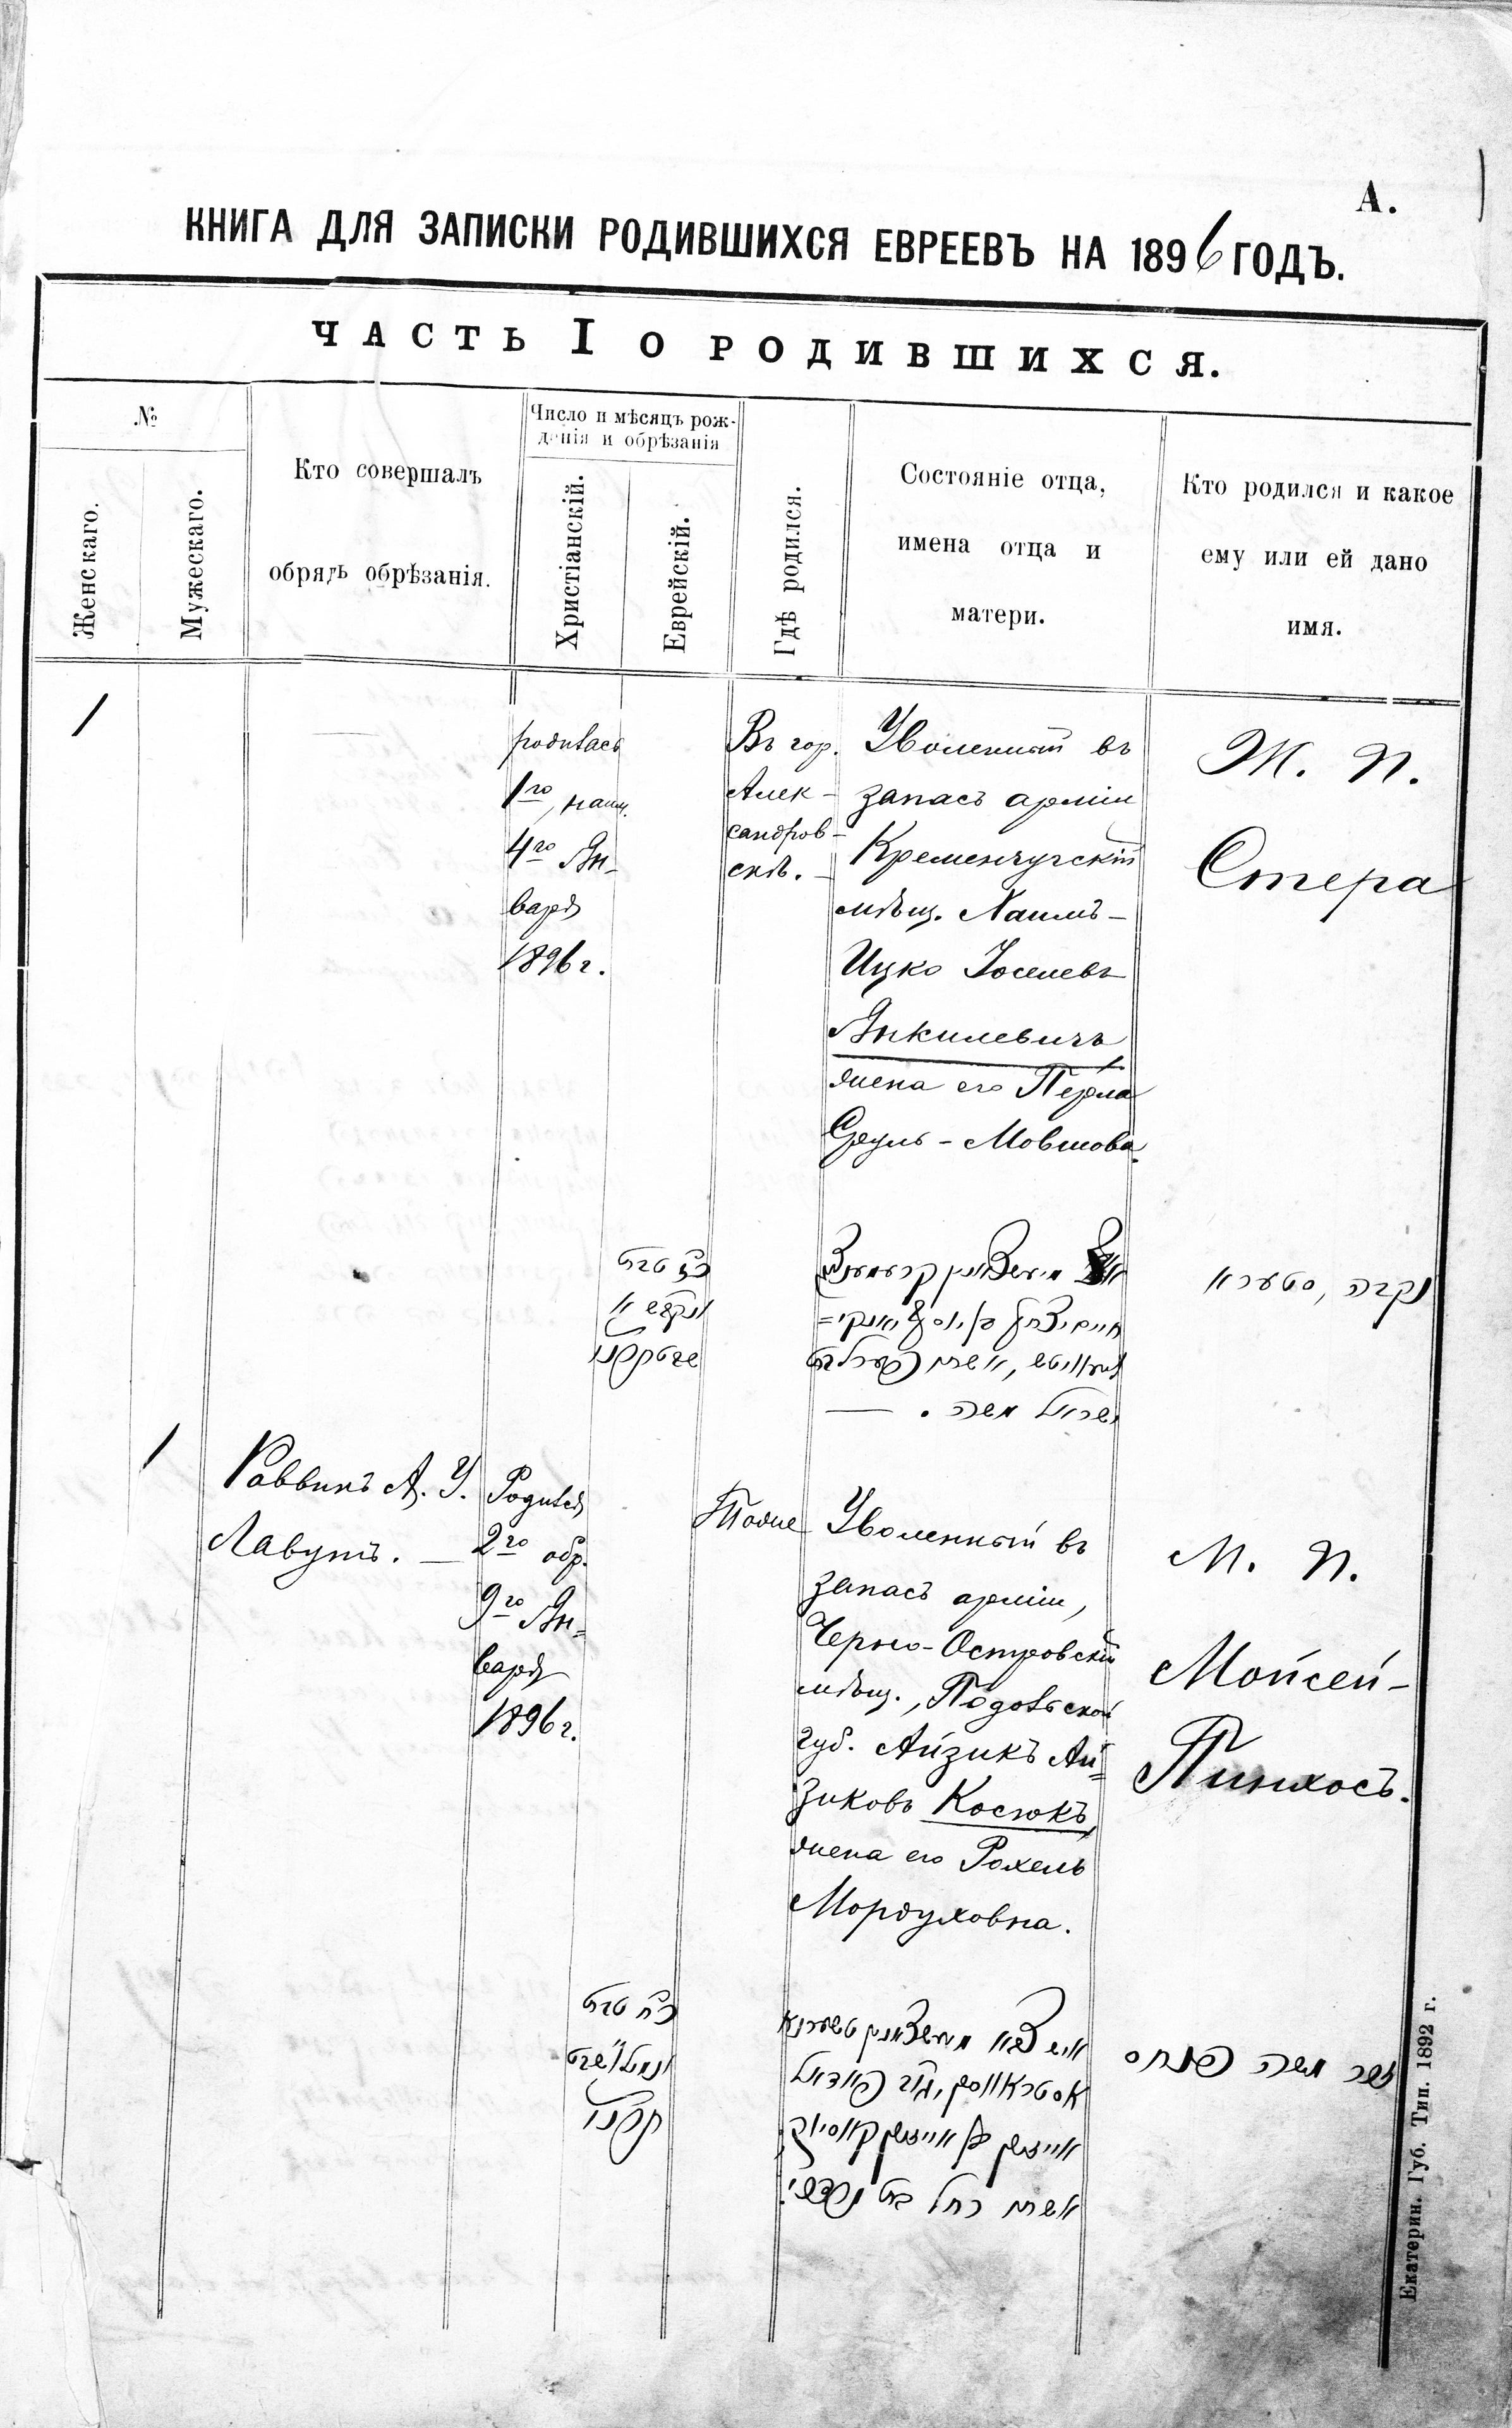 А.
КНИГА ДЛЯ ЗАПИСКИ РОДИВШИХСЯ ЕВРЕЕВЪ НА 1896 ГОДЪ.
ЧАСТЬ I О РОДИВШИХСЯ.
№
Женскаго.
Мужескаго.
Кто совершалъ
обрядъ обрѣзанія.
Число и мѣсяцъ рож-
денія и обрѣзанія
Христіанскій.
Еврейскій.
Гдѣ родился.
Состояніе отца,
имена отца и
матери.
Кто родился и какое
ему или ей дано
имя.
1
родилась
1го, наим.
4го Ян-
варя
1896 г.
Въ гор.
Алек-
сандров-
скѣ.
Уволенный въ
запасъ арміи
Кременчугскій
мѣщ. Хаимъ-
Ицко Іоселевъ
Янкилевичъ
жена его Перла
Сруль-Мовшова.
Ж. п.
Стера
כז טבת
נקבה, סטערא
ישראל משה.
1
Раввинъ А. У.
Лавутъ.
Родился
2го обр.
9го Ян-
варя
1896 г.
Тоже
Уволенный въ
запасъ арміи,
Черно-Островскій
мѣщ., Подольской
губ. Айзикъ Ай-
зиковъ Косюкъ,
жена его Рохель
Мордуховна.
М. п.
Мойсей-
Пинхосъ.
כח טבת
זכר משה פנחס
Екатерин. Губ. Тип. 1892 г.